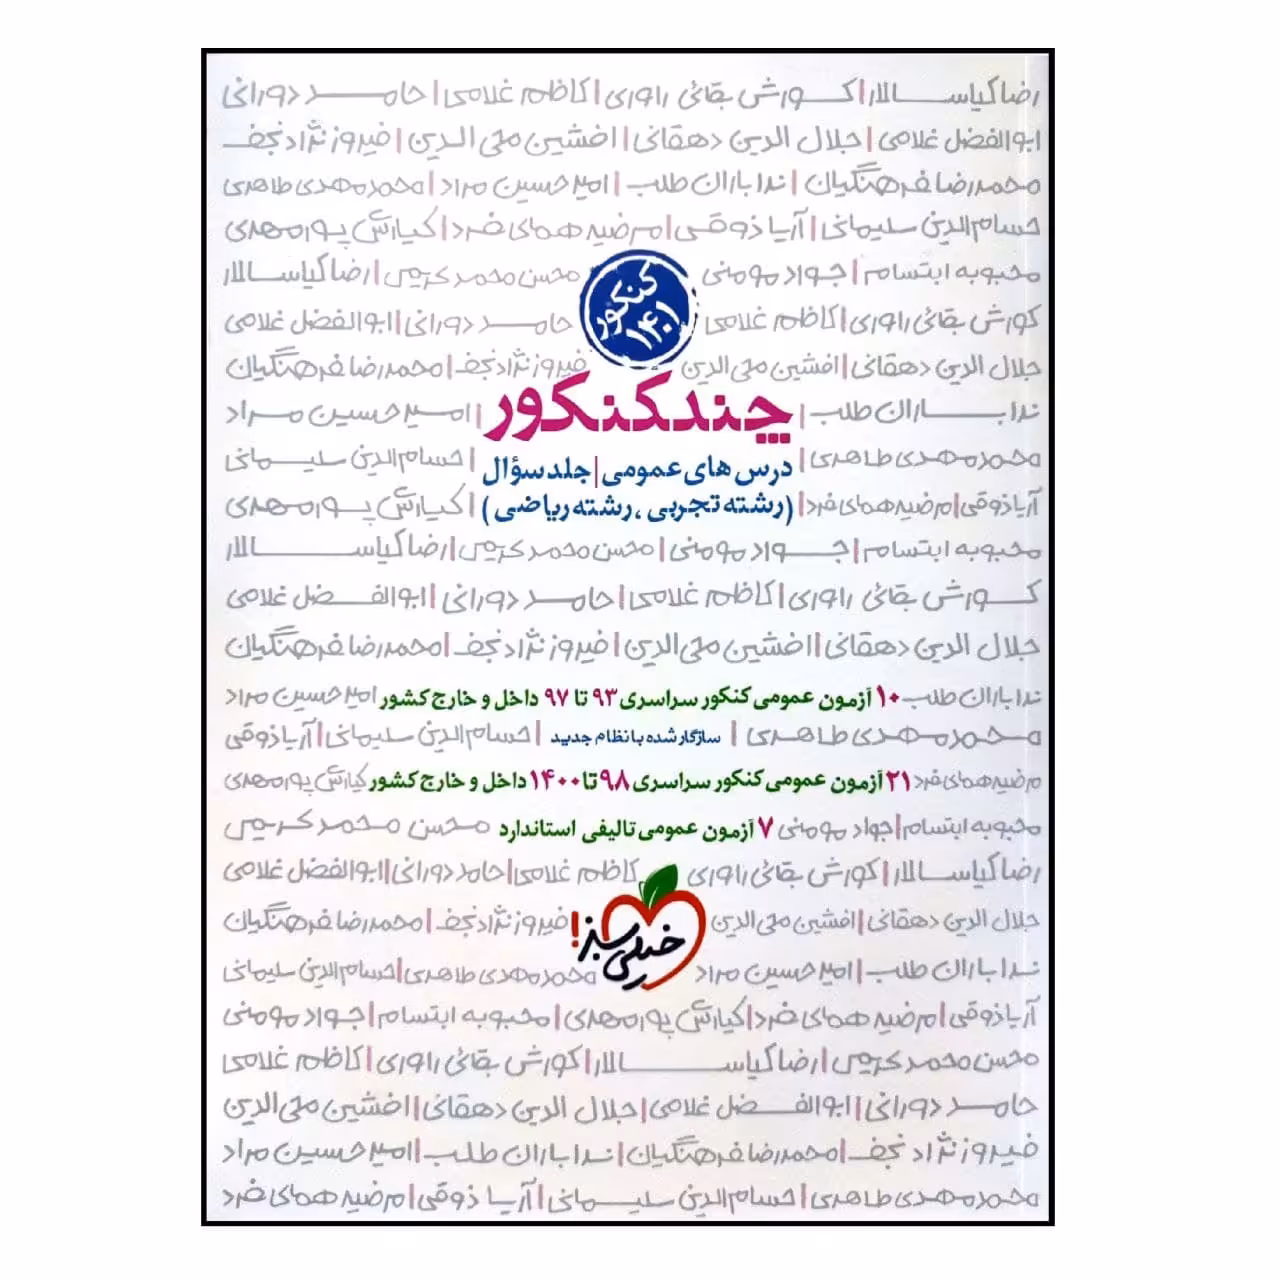 رضا کیاسالار | کورش بقائی راوری | کاظم غلامی | حامد دورانی
ابوالفضل غلامی | جلال الدین دهقانی | افشین محی الدین | فیروز نژاد نجف
محمدرضا فرهنگیان | ندا باران طلب | امیرحسین مراد | محمدمهدی طاهری
حسام الدین سلیمانی | آریا ذوقی | مرضیه همای فرد | کیارش پورمهدی
محبوبه ابتسام | جواد مومنی
محسن محمدکریمی | رضا کیاسالار
کنکور
۱۴۰۱
کورش بقائی راوری | کاظم غلامی
حامد دورانی | ابوالفضل غلامی
جلال الدین دهقانی | افشین محی الدین
فیروز نژاد نجف | محمدرضا فرهنگیان
چند کنکور
ندا باران طلب |
| امیرحسین مراد
درس های عمومی | جلد سؤال
محمدمهدی طاهری |
| حسام الدین سلیمانی
(رشته تجربی ، رشته ریاضی)
آریا ذوقی | مرضیه همای فرد |
| کیارش پورمهدی
محبوبه ابتسام | جواد مومنی | محسن محمدکریمی | رضا کیاسالار
کورش بقائی راوری | کاظم غلامی | حامد دورانی | ابوالفضل غلامی
جلال الدین دهقانی | افشین محی الدین | فیروز نژاد نجف | محمدرضا فرهنگیان
ندا باران طلب ۱۰ آزمون عمومی کنکور سراسری ۹۳ تا ۹۷ داخل و خارج کشور امیرحسین مراد
محمدمهدی طاهری | سازگار شده با نظام جدید | حسام الدین سلیمانی | آریا ذوقی
مرضیه همای فرد ۲۱ آزمون عمومی کنکور سراسری ۹۸ تا ۱۴۰۰ داخل و خارج کشور کیارش پورمهدی
محبوبه ابتسام | جواد مومنی ۷ آزمون عمومی تالیفی استاندارد محسن محمدکریمی
رضا کیاسالار | کورش بقائی راوری
کاظم غلامی | حامد دورانی | ابوالفضل غلامی
جلال الدین دهقانی | افشین محی الدین
فیروز نژاد نجف | محمدرضا فرهنگیان
خیلی سبز!
ندا باران طلب | امیرحسین مراد
محمدمهدی طاهری | حسام الدین سلیمانی
آریا ذوقی | مرضیه همای فرد | کیارش پورمهدی | محبوبه ابتسام | جواد مومنی
محسن محمدکریمی | رضا کیاسالار | کورش بقائی راوری | کاظم غلامی
حامد دورانی | ابوالفضل غلامی | جلال الدین دهقانی | افشین محی الدین
فیروز نژاد نجف | محمدرضا فرهنگیان | ندا باران طلب | امیرحسین مراد
محمدمهدی طاهری | حسام الدین سلیمانی | آریا ذوقی | مرضیه همای فرد